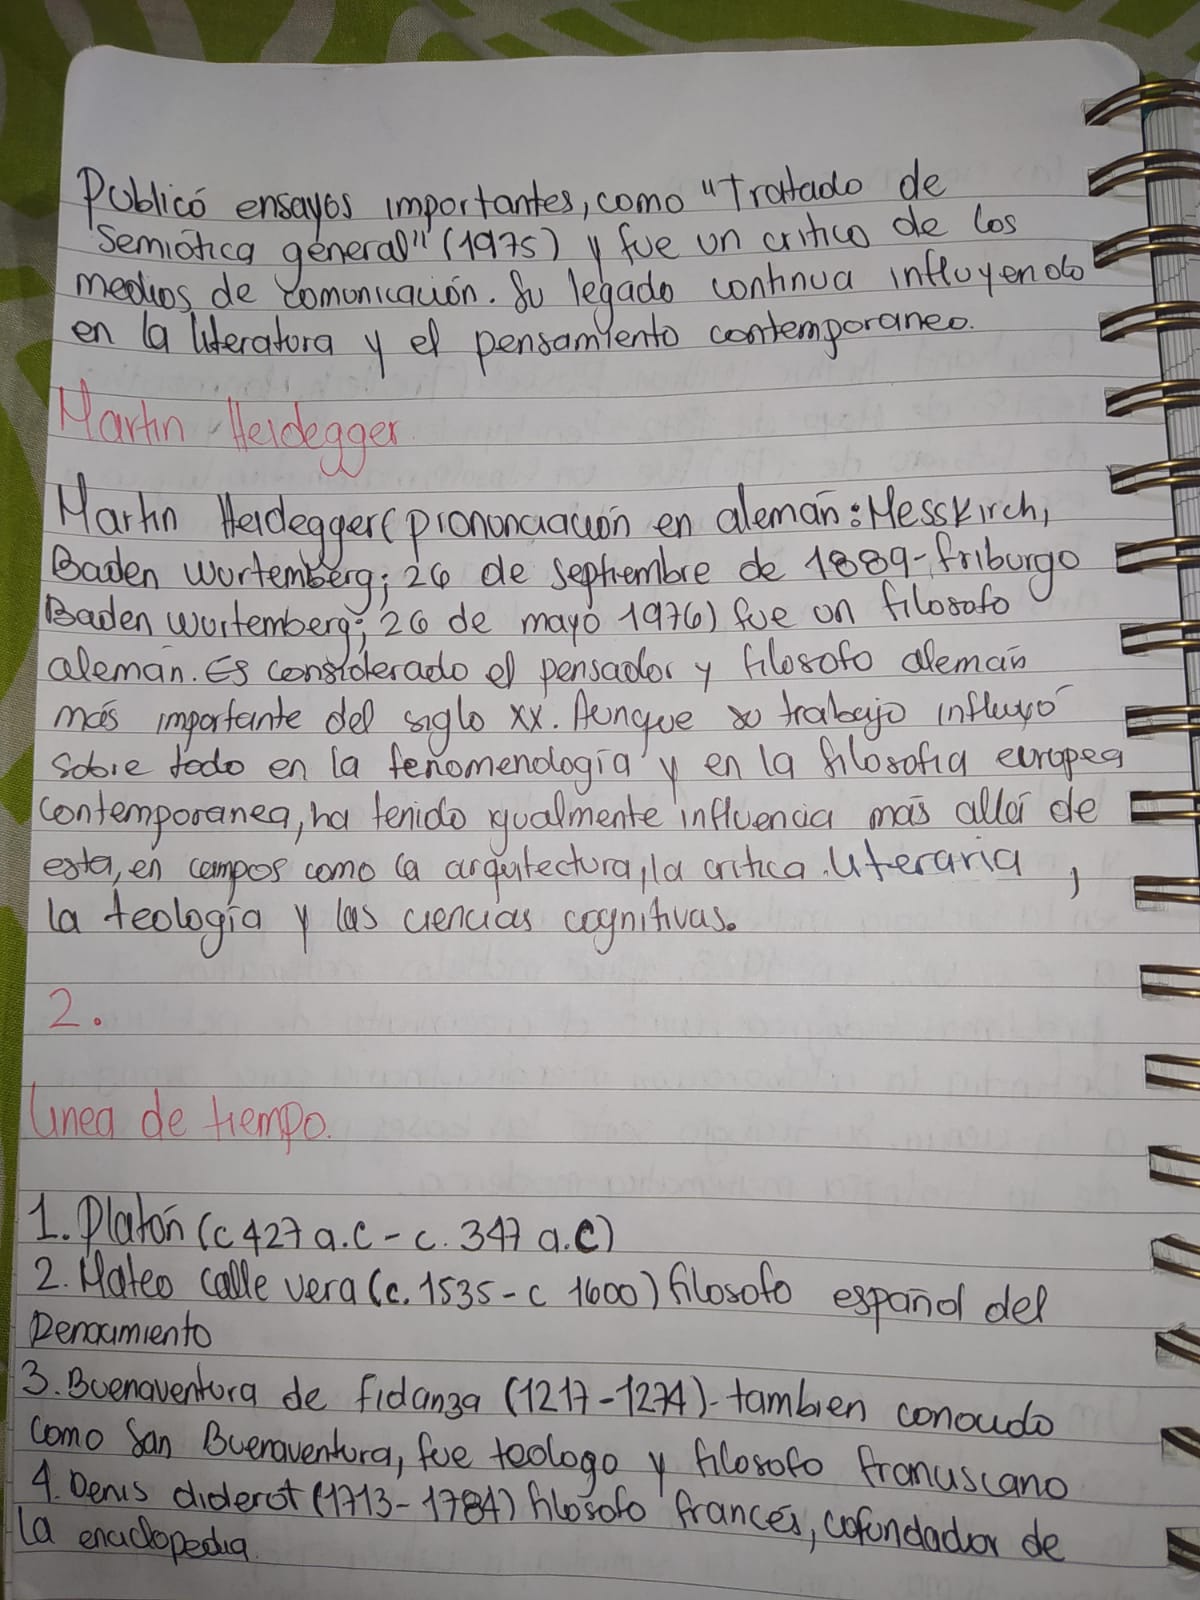 Publicó ensayos importantes, como "Tratado de
Semiótica general" (1975) y fue un critico de los
medios de comunicación. Su legado continua influyendo
en la literatura y el pensamiento contemporaneo.
Martin Heidegger.
Martin Heidegger (prononciación en alemán: Messkirch,
Baden Wurtemberg; 26 de septiembre de 1889-friburgo
Baden Wurtemberg; 26 de mayo 1976) fue un filosofo
alemán. Es considerado el pensador y filosofo alemán
más importante del siglo xx. Aunque su trabajo influyó
sobre todo en la fenomenología y en la filosofia europea
contemporanea, ha tenido igualmente influencia más allá de
esta, en campos como la arquitectura, la critica literaria,
la teología y las ciencias cognitivas.
2.
Linea de tiempo.
1. Platón (c 427 a.c - c. 347 a.c)
2. Mateo calle vera (c. 1535 - c 1600) filosofo español del
Renacimiento
3. Buenaventura de fidanza (1217-1274)- tambien conocido
como San Buenaventura, fue teologo y filosofo franciscano
4. Denis diderot (1713-1784) filosofo francés, cofundador de
la enciclopedia.